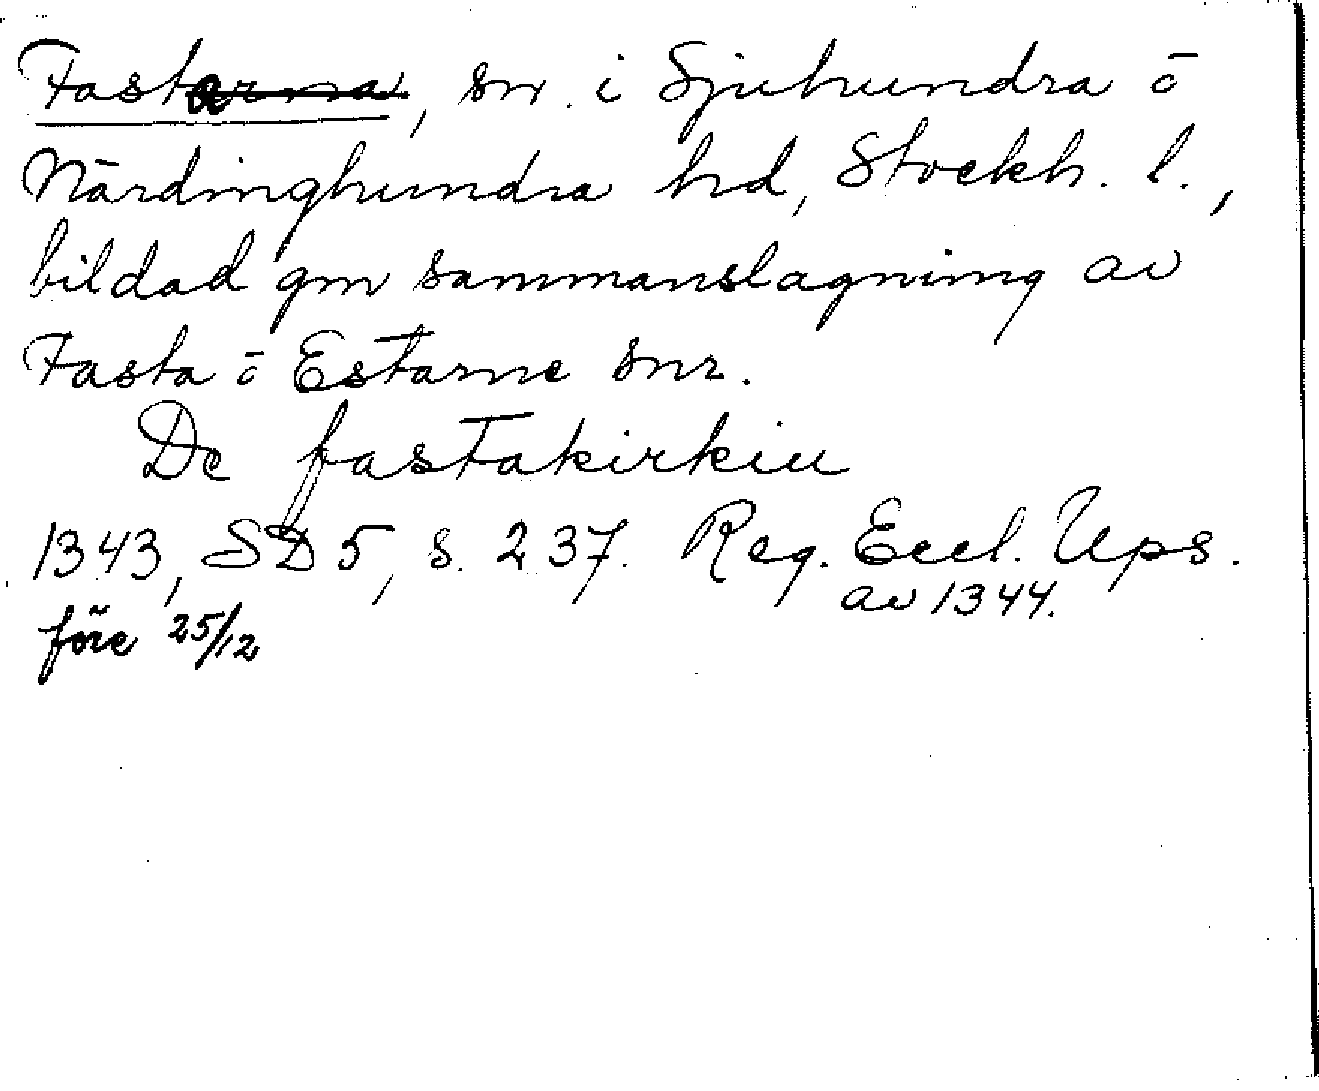 Fasta, sn. i Sjuhundra o
Närdinghundra hd, Stockh. l.,
bildad gm sammanslagning av
Fasta o Estarne snr.
De fastakirkiu
1343, SD 5, s. 237. Reg. Eccl. Ups.
av 1344.
före 25/12